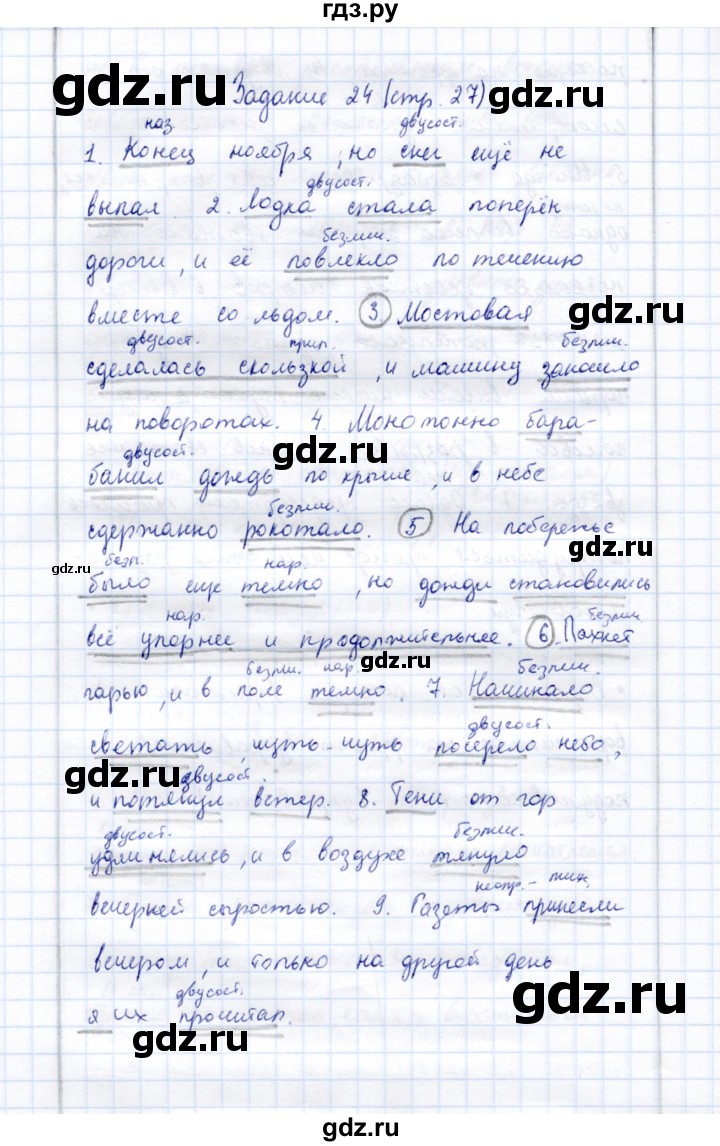 гдз.ру
gdz.ru Задание 24 (стр. 27) gdz.ru
наз. двусост.
1. Конец ноября, но снег ещё не
двусост.
выпал. 2. Лодка стала поперёк
безлич.
дороги, и её повлекло по течению
вместе со льдом. 3 Мостовая gdz.ru
двусост. прил. безлич.
сделалась скользкой, и машину заносило
на поворотах. 4. Монотонно бара-
двусост. gdz.ru
банил дождь по крыше, и в небе
безлич.
сдержанно рокотало. 5 На побережье
gdz.ru безл. нар. gdz.ru
было еще темно, но дожди становились
нар. безлич
всё упорнее и продолжительнее. 6. Пахнет
безлич. нар. gdz.ru безлич.
гарью, и в поле темно. 7. Начинало
двусост.
светать, чуть-чуть посерело небо,
gdz.ru двусост. gdz.ru
и потянул ветер. 8. Тени от гор
двусост. безлич.
удлинялись, и в воздухе тянуло
неопр.-лич.
вечерней сыростью. 9. Газеты принесли
вечером, и только на другой день
двусост. gdz.ru
я их прочитал.
gdz.ru
gdz.ru